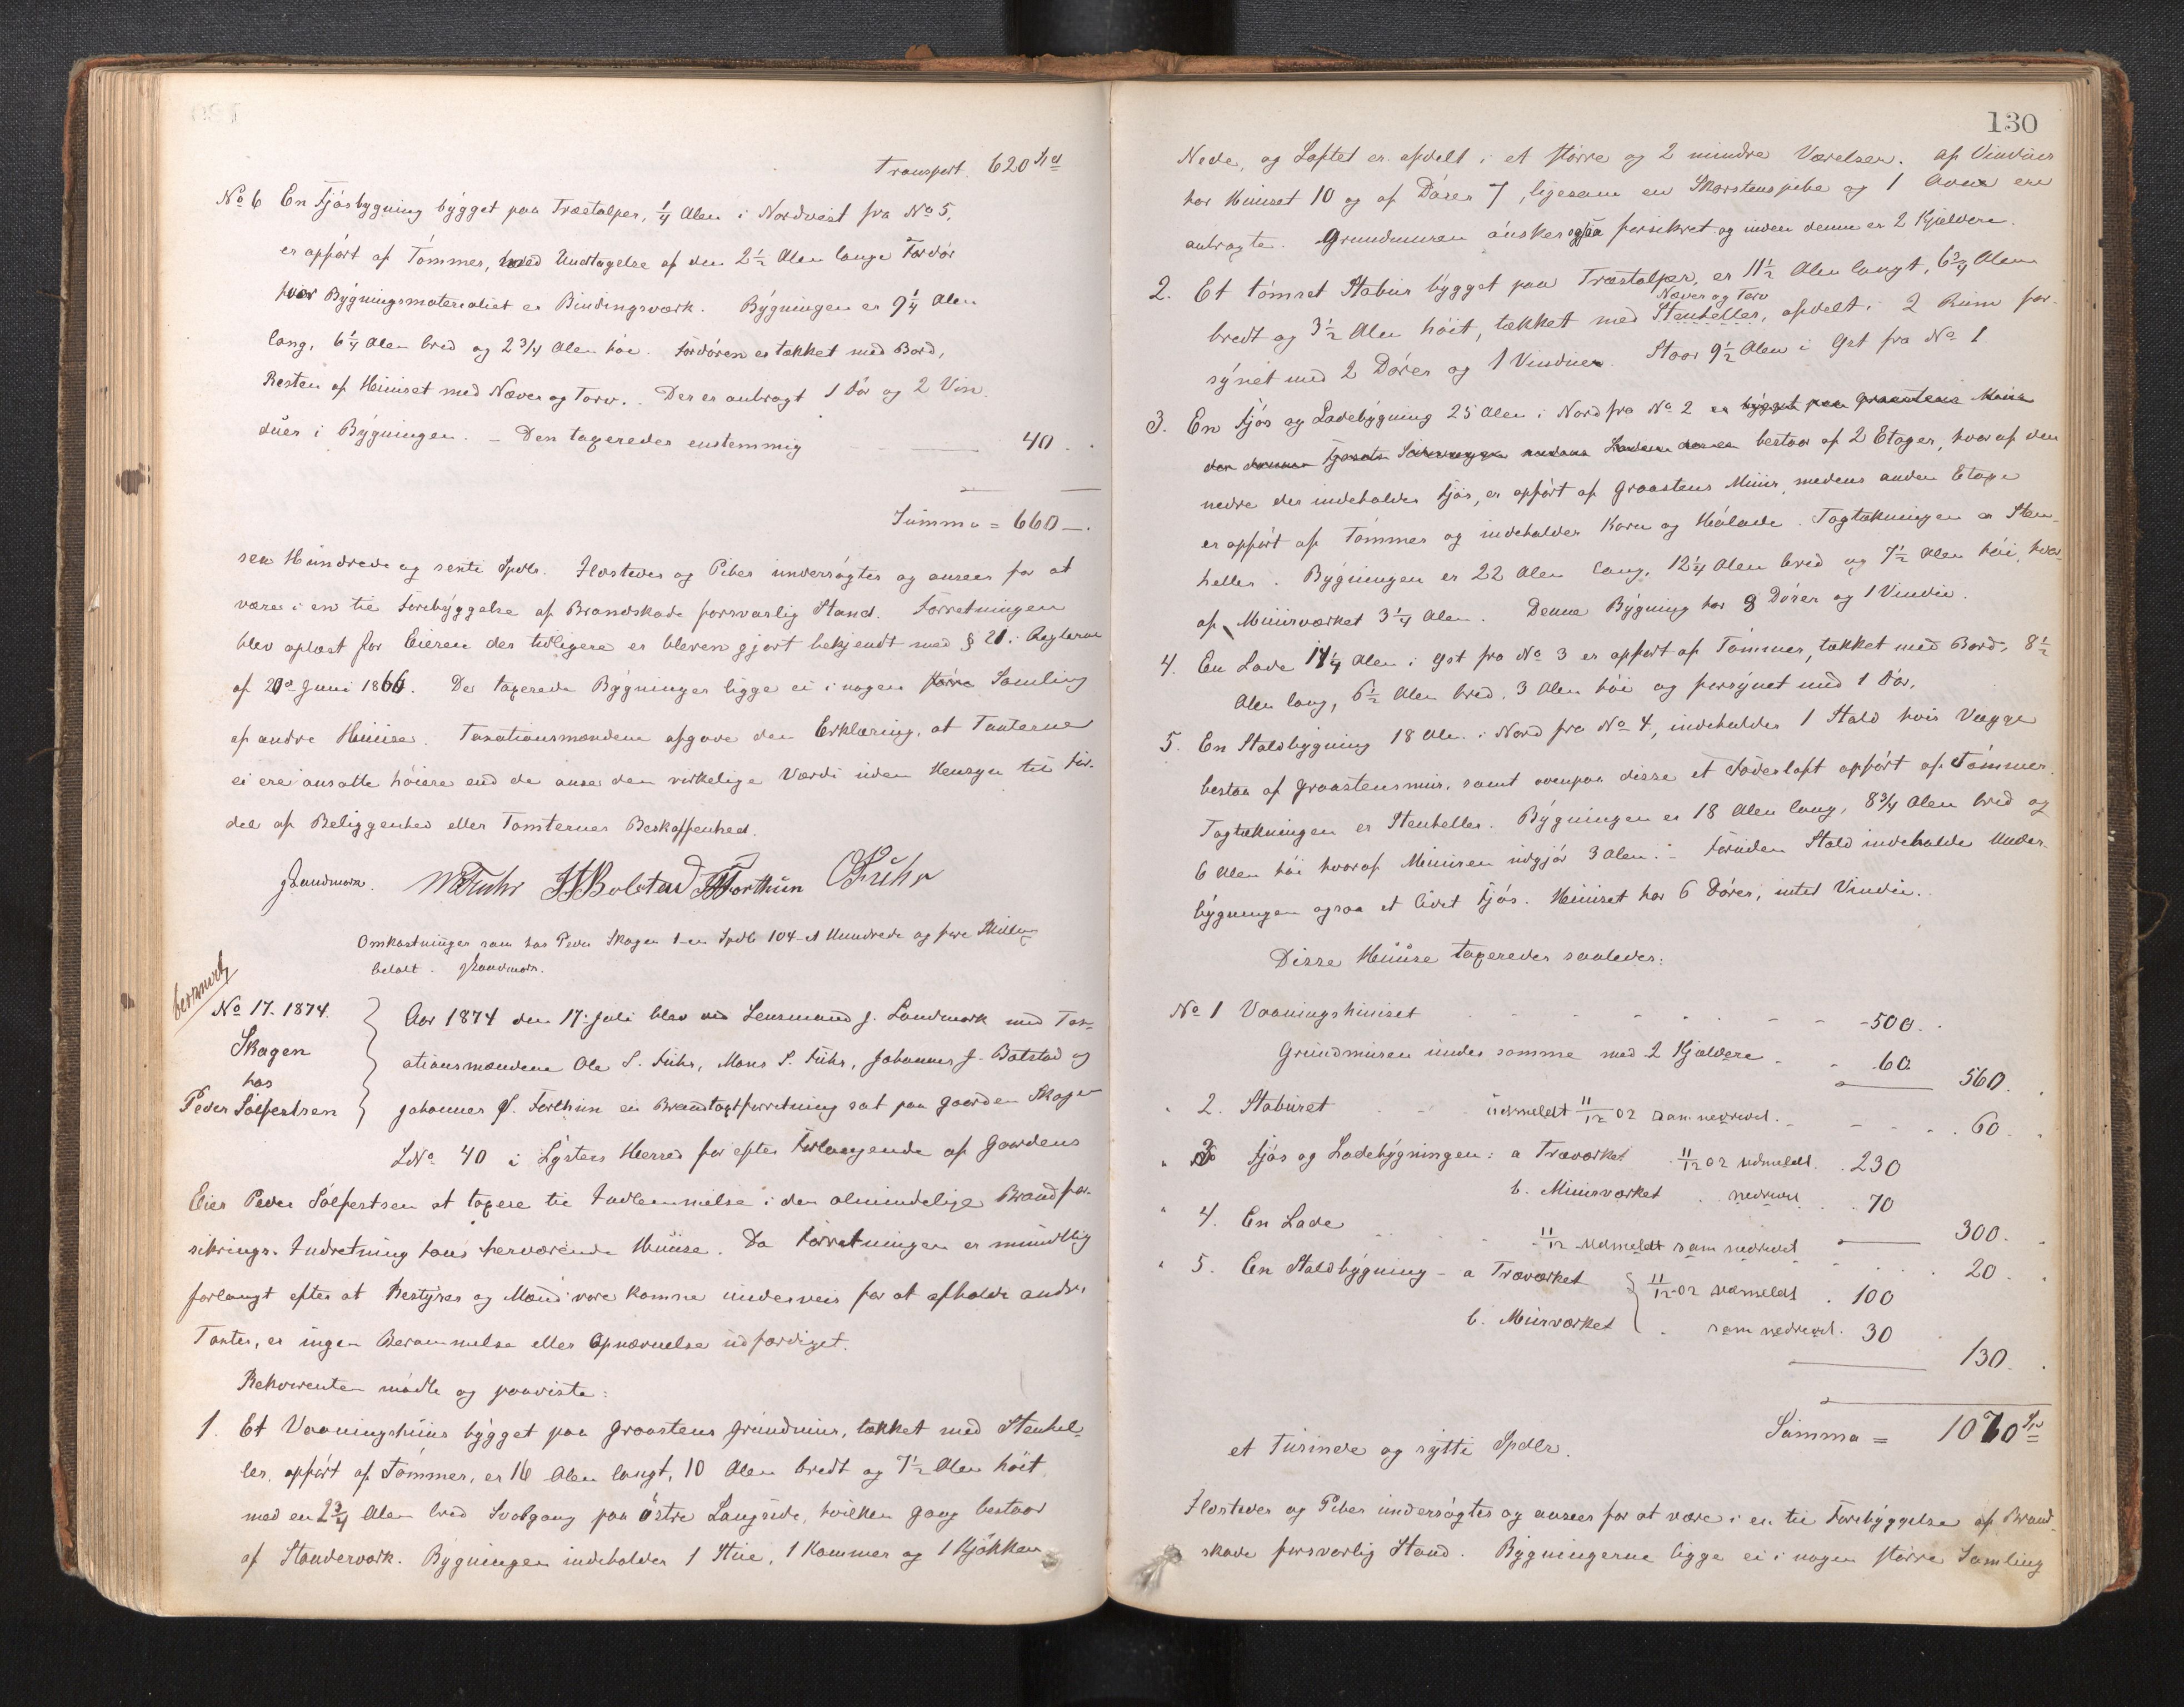 Transport. 620 Spd
No 6 En Fjösbygning bygget paa Træstolper, 1/4 Alen i Nordvest fra No 5,
er opfört af Tömmer, med Undtagelse af den 2 1/2 Alen lange Fordör
hvor Bygningsmaterialiet er Bindingsværk. Bygningen er 9 1/4 Alen
lang, 6 1/4 Alen bred og 2 3/4 Alen höi. Fordören er tækket med Bord,
Resten af Huuset med Næver og Torv. Der er anbragt 1 Dör og 2 Vin
duer i Bygningen. – Den taxeredes enstemmig 40.
Summa = 660 –.
sex Hundrede og sexti Spdlr. Ildsteder og Piber undersögtes og ansees for at
være i en til Forebyggelse af Brandskade forsvarlig Stand. Forretningen
blev oplæst for Eieren der tidligere er bleven gjort bekjendt med § 21 i Reglerne
af 20de Juni 1866. De taxerede Bygninger ligge ei i nogen större Samling
af andre Huuse. Taxationsmændene afgave den Erklæring, at Taxterne
ei ere ansatte höiere end de anse den virkelige Værdi uden Hensyn til For-
del af Beliggenhed eller Tomternes Beskaffenhed.
J Landmark. M S Fuhr J J Bolstad J J Forthun O S Fuhr
Omkostninger som hos Peder Skagen 1 – en Spdlr 104 – et Hundrede og fire Skilling
betalt. J Landmark.
bemærket
No 17. 1874.
Skagen
hos
Peder Solfestsen
Aar 1874 den 17 Juli blev ved Lensmand J. Landmark med Tax-
ationsmændene Ole S. Fuhr, Mons S. Fuhr, Johannes J. Bolstad og
Johannes J. Forthun en Brandtaxtforretning sat paa Gaarden Skagen
LNo 40 i Lysters Herred for efter Forlangende af Gaardens
Eier Peder Solfestsen at taxere til Indlemmelse i den almindelige Brandfor-
sikrings-Indretning hans herværende Huuse. Da Forretningen er mundtlig
forlangt efter at Bestyrer og Mænd vare komne underveis for at afholde andre
Taxter, er ingen Berammelse eller Opnævnelse udfærdiget.
Rekvirenten mödte og paaviste:
1. Et Vaaningshuus bygget paa Graastens Grundmuur, tækket med Stenhel-
ler, opfört af Tömmer, er 16 Alen langt, 10 Alen bredt og 7 1/2 Alen höit
med en 2 3/4 Alen bred Svalgang paa östre Langside, hvilken Gang bestaar
af Standerværk. Bygningen indeholder 1 Stue, 1 Kammer og 1 Kjökken
130
Nede, og Loftet er afdelt i et större og 2 mindre Værelser. Af Vinduer
har Huuset 10 og af Dörer 7, ligesom en Skorstenspibe og 1 Ovn ere
anbragte. Grundmuren önskes ogsaa forsikret og inden denne er 2 Kjeldere.
2. Et tömret Stabur bygget paa Træstolper, er 11 1/2 Alen langt, 6 3/4 Alen
Næver og Torv
bredt og 3 1/2 Alen höit, tækket med Stenheller, afdelt i 2 Rum for-
synet med 2 Dörer og 1 Vindue. Staar 9 1/2 Alen i Öst fra No 1
3. En Fjös og Ladebygning 25 Alen i Nord fra No 2 er bygget paa Graastens Muur
bestaar af 2 Etager, hvoraf den
nedre der indeholder Fjös, er opfört af Graastens Muur, medens anden Etage
er opfört af Tömmer og indeholder Korn og Hölade. Tagtækningen er Sten-
heller. Bygningen er 22 Alen lang, 12 1/4 Alen bred og 7 1/2 Alen höi, hvor
af Muurværket 3 1/4 Alen. Denne Bygning har 8 Dörer og 1 Vindue.
4. En Lade 14 1/4 Alen i Öst fra No 3 er opfört af Tömmer, tækket med Bord, 8 1/2
Alen lang, 6 1/2 Alen bred, 3 Alen höi og forsynet med 1 Dör.
5. En Staldbygning 18 Alen i Nord fra No 4, indeholder 1 Stald hvis Vægge
bestaa af Graastensmur, samt ovenpaa disse et Foderloft opfört af Tömmer.
Tagtækningen er Stenheller. Bygningen er 18 Alen lang, 8 3/4 Alen bred og
6 Alen höi hvoraf Muuren udgjör 3 Alen. – Foruden Stald indeholder Under-
bygningen ogsaa et lidet Fjös. Huuset har 6 Dörer, intet Vindue.
Disse Huuse taxeredes saaledes:
No 1 Vaaningshuuset 500.
Grundmuren under samme med 2 Kjeldere 60. 560.
" 2. Staburet udmeldt 11/12 02 som nedrevet. 60.
" 3 Fjös og Ladebygningen: a Træværket 11/12 02 udmeldt. 230
b. Muurværket nedrevet 70
300.
" 4. En Lade 11/12 udmeldt som nedrevet 20.
" 5. En Staldbygning – a Træværket 11/12 02 udmeldt 100
b. Muurværket som nedrevet. 30
130.
Summa = 1070 Spd
et Tusinde og sytti Spdlr.
Ildsteder og Piber undersögtes og ansees for at være i en til Forebyggelse af Brand-
skade forsvarlig Stand. Bygningerne ligge ei i nogen större Samling